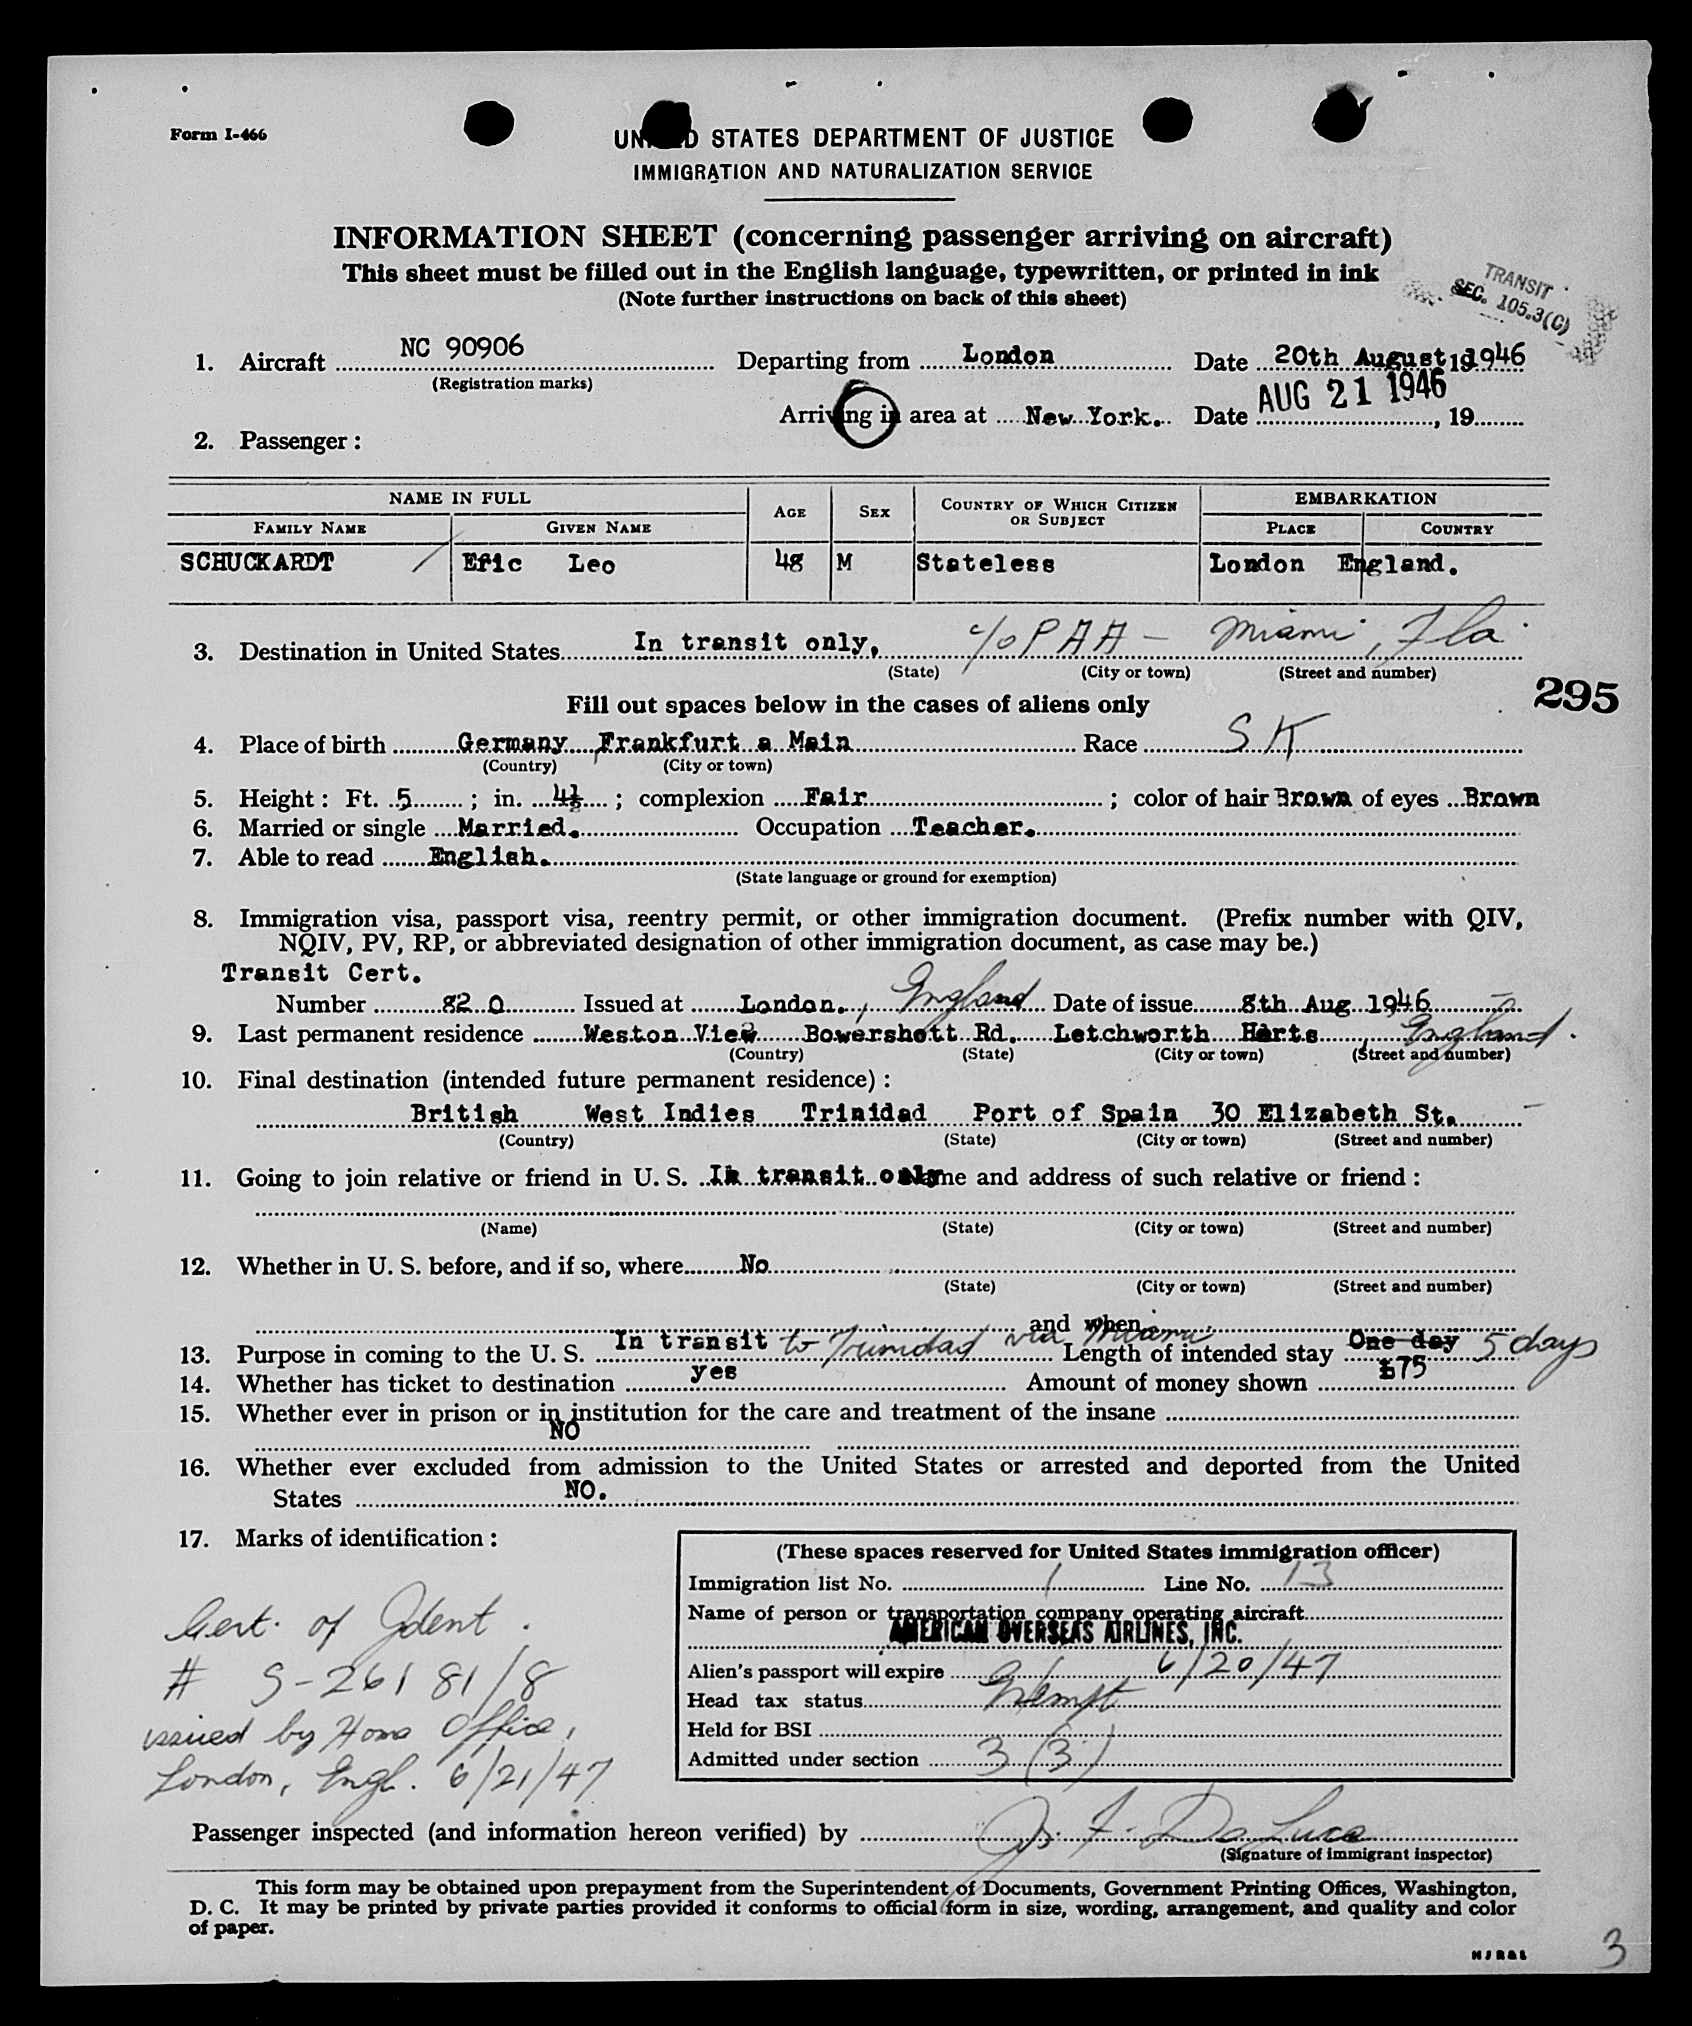 Form I-466
UNITED STATES DEPARTMENT OF JUSTICE
IMMIGRATION AND NATURALIZATION SERVICE
INFORMATION SHEET (concerning passenger arriving on aircraft)
This sheet must be filled out in the English language, typewritten, or printed in ink
(Note further instructions on back of this sheet)
TRANSIT
SEC. 105.3(C)
1. Aircraft NC 90906 Departing from London Date 20th August 19 1946
(Registration marks)
Arriving in area at New York. Date AUG 21 1946, 19
2. Passenger:
NAME IN FULL AGE SEX COUNTRY OF WHICH CITIZEN OR SUBJECT EMBARKATION
FAMILY NAME GIVEN NAME PLACE COUNTRY
SCHUCKARDT / Eric Leo 48 M Stateless London England.
3. Destination in United States In transit only, c/o PAA - Miami, Fla
(State) (City or town) (Street and number)
295
Fill out spaces below in the cases of aliens only
4. Place of birth Germany Frankfurt a Main Race S K
(Country) (City or town)
5. Height: Ft. 5 ; in. 4½ ; complexion Fair ; color of hair Brown of eyes Brown
6. Married or single Married. Occupation Teacher.
7. Able to read English.
(State language or ground for exemption)
8. Immigration visa, passport visa, reentry permit, or other immigration document. (Prefix number with QIV,
NQIV, PV, RP, or abbreviated designation of other immigration document, as case may be.)
Transit Cert.
Number 82 0 Issued at London., England Date of issue 8th Aug 1946
9. Last permanent residence Weston View Bowershott Rd. Letchworth Herts, England.
(Country) (State) (City or town) (Street and number)
10. Final destination (intended future permanent residence):
British West Indies Trinidad Port of Spain 30 Elizabeth St.
(Country) (State) (City or town) (Street and number)
11. Going to join relative or friend in U. S. In transit only Name and address of such relative or friend:
(Name) (State) (City or town) (Street and number)
12. Whether in U. S. before, and if so, where No
(State) (City or town) (Street and number)
and when
13. Purpose in coming to the U. S. In transit to Trinidad via Miami Length of intended stay One day 5 days
14. Whether has ticket to destination yes Amount of money shown £75
15. Whether ever in prison or in institution for the care and treatment of the insane
NO
16. Whether ever excluded from admission to the United States or arrested and deported from the United
States NO.
17. Marks of identification:
Cert. of Ident.
# S-26181/8
issued by Home Office,
London, Engl. 6/21/47
(These spaces reserved for United States immigration officer)
Immigration list No. 1 Line No. 13
Name of person or transportation company operating aircraft
AMERICAN OVERSEAS AIRLINES, INC.
Alien's passport will expire 6/20/47
Head tax status Exempt
Held for BSI
Admitted under section 3 (3)
Passenger inspected (and information hereon verified) by Js. F. De Luca
(Signature of immigrant inspector)
This form may be obtained upon prepayment from the Superintendent of Documents, Government Printing Offices, Washington,
D. C. It may be printed by private parties provided it conforms to official form in size, wording, arrangement, and quality and color
of paper.
3